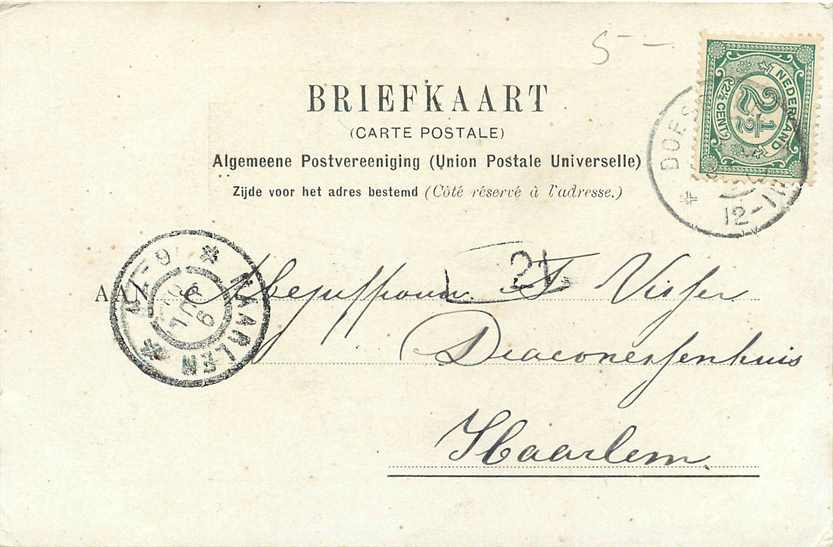 5 —
BRIEFKAART
(CARTE POSTALE)
Algemeene Postvereeniging (Union Postale Universelle)
Zijde voor het adres bestemd (Côté réservé à l'adresse.)
NEDERLAND
2½
(2½ CENT)
DOES
12-1
HAARLEM
21
AAN Mejuffrouw F Visser
Diaconessenhuis
Haarlem